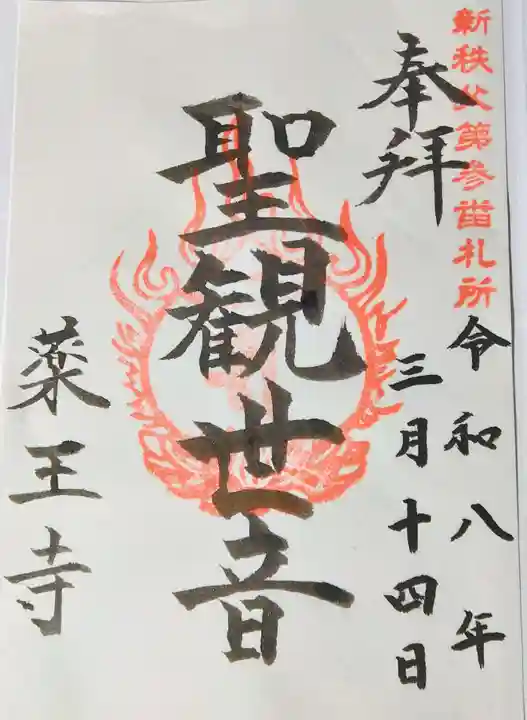 新秩父第参番札所
奉拝
令和八年
三月十四日
聖観世音
薬王寺